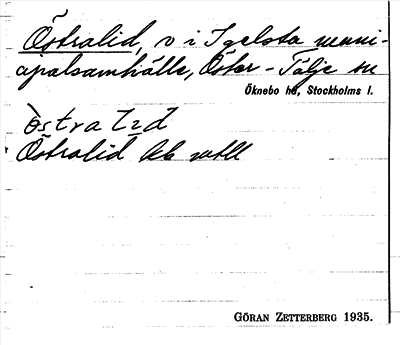 Östralid, v i Igelsta muni-
cipalsamhälle, Öster-Tälje sn
Öknebo hd, Stockholms l.
östra lid
Östralid
GÖRAN ZETTERBERG 1935.